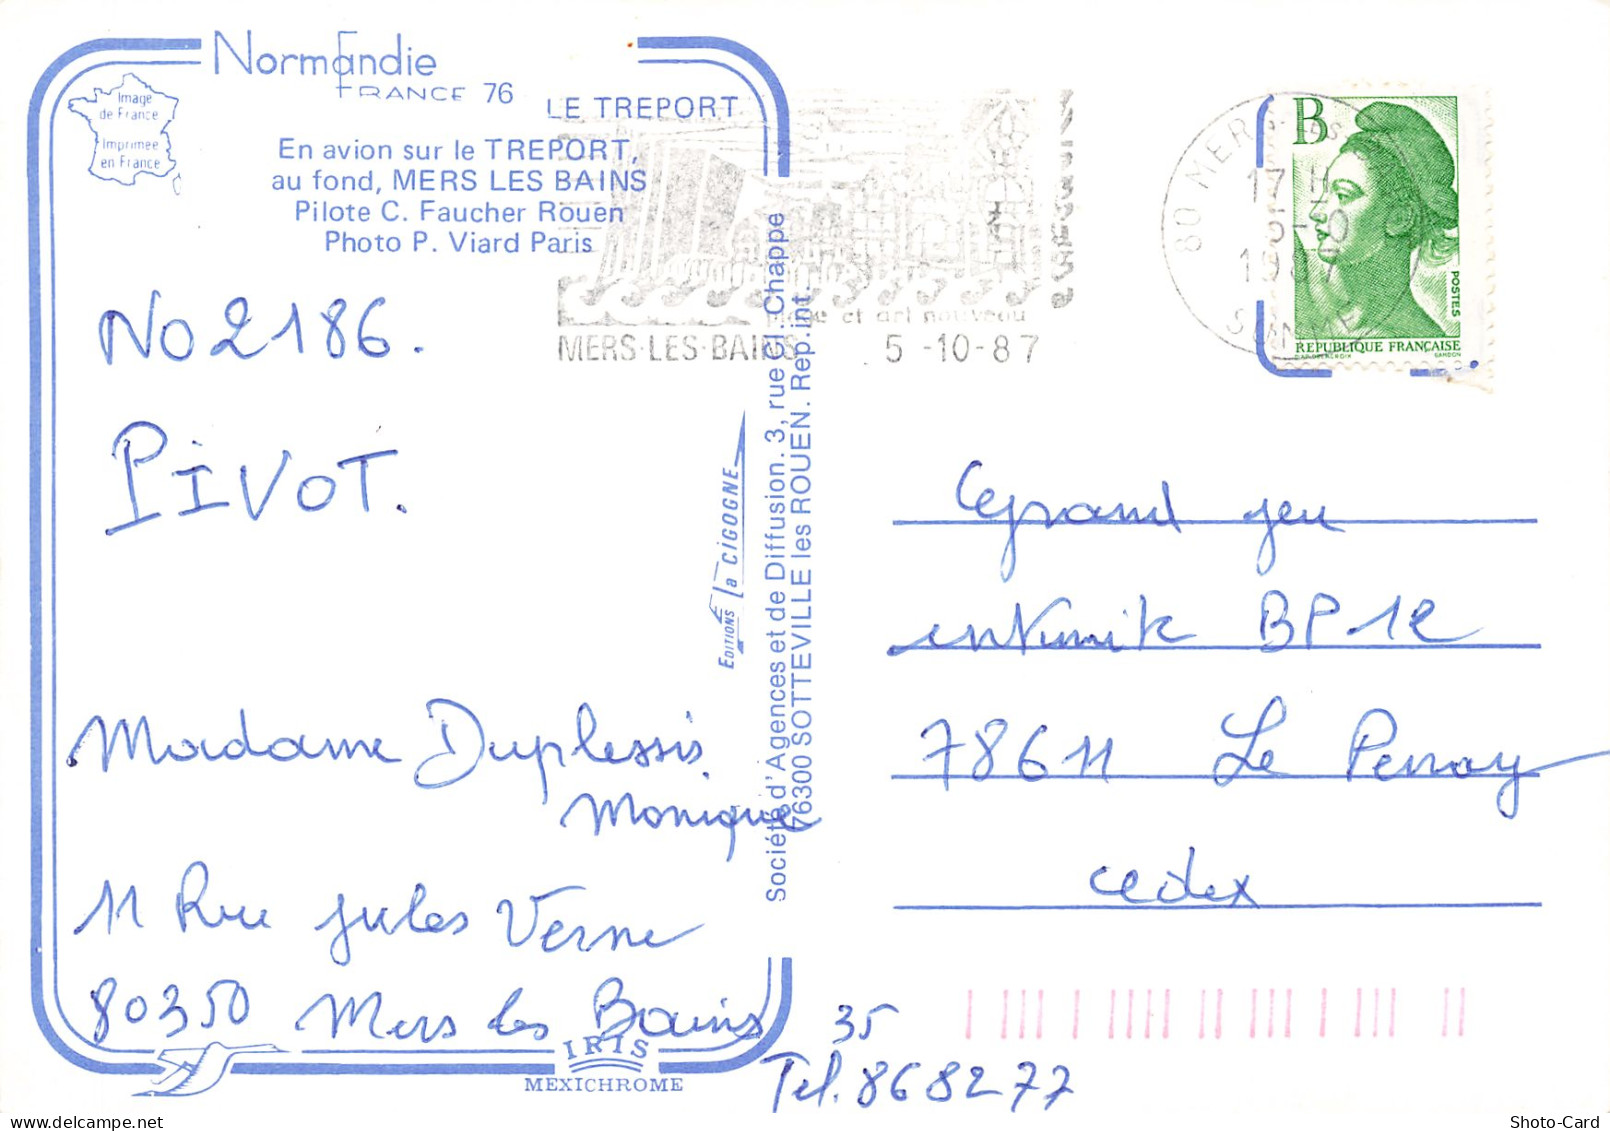 Normandie
FRANCE 76
Image
de France
Imprimée
en France
LE TREPORT
En avion sur le TREPORT,
au fond, MERS LES BAINS
Pilote C. Faucher Rouen
Photo P. Viard Paris
plage et art nouveau
MERS·LES·BAINS 5 -10-87
80 MERS
17 H
5-10
SOMME
B
POSTES
REPUBLIQUE FRANÇAISE
GANDON
No 2186.
PIVOT.
Madame Duplessis
Monique
11 Rue Jules Verne
80350 Mers les Bains
35
Tel. 868277
Editions la CIGOGNE
Société d'Agences et de Diffusion. 3, rue Cl. Chappe
76300 SOTTEVILLE les ROUEN. Rep.int.
Le grand jeu
BP 12
78611 Le Perray
cedex
IRIS
MEXICHROME
Shoto-Card